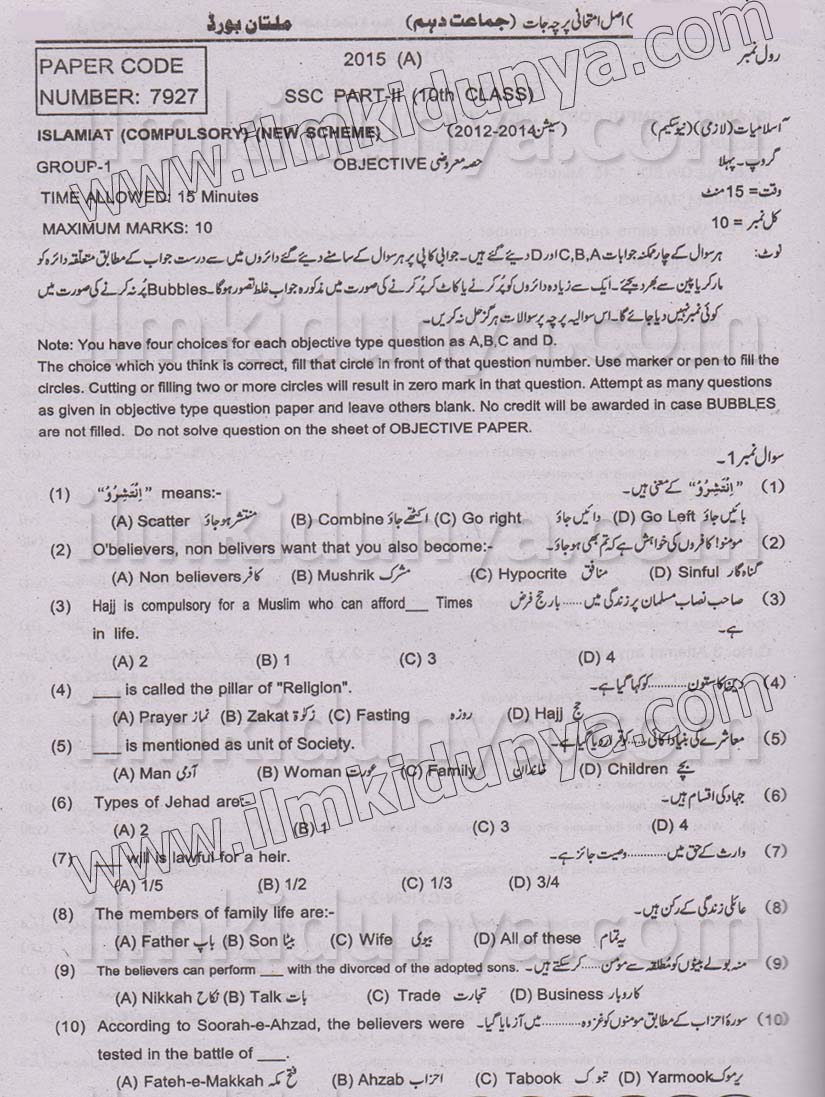 اصل امتحانی پرچہ جات (جماعت دہم) ملتان بورڈ
PAPER CODE
NUMBER: 7927
2015 (A)
رول نمبر
SSC PART-II (10th CLASS)
ISLAMIAT (COMPULSORY) (NEW SCHEME) (سیشن 2012-2014) اسلامیات (لازمی) (نیو سکیم)
GROUP-1 OBJECTIVE حصہ معروضی گروپ۔ پہلا
TIME ALLOWED: 15 Minutes وقت = 15 منٹ
MAXIMUM MARKS: 10 کل نمبر = 10
نوٹ: ہر سوال کے چار ممکنہ جوابات C,B,A اور D دیئے گئے ہیں۔ جوابی کاپی پر ہر سوال کے سامنے دیئے گئے دائروں میں سے درست جواب کے مطابق متعلقہ دائرہ کو
مارکر یا پین سے بھر دیجئے۔ ایک سے زیادہ دائروں کو پُر کرنے یا کاٹ کر پُر کرنے کی صورت میں مذکورہ جواب غلط تصور ہوگا۔ Bubbles پُر نہ کرنے کی صورت میں
کوئی نمبر نہیں دیا جائے گا۔ اس سوالیہ پرچہ پر سوالات ہرگز حل نہ کریں۔
Note: You have four choices for each objective type question as A,B,C and D.
The choice which you think is correct, fill that circle in front of that question number. Use marker or pen to fill the
circles. Cutting or filling two or more circles will result in zero mark in that question. Attempt as many questions
as given in objective type question paper and leave others blank. No credit will be awarded in case BUBBLES
are not filled. Do not solve question on the sheet of OBJECTIVE PAPER.
سوال نمبر 1۔
(1) "اِنْتَشِرُوْا" means:- (1) "اِنْتَشِرُوْا" کے معنی ہیں۔
(A) Scatter منتشر ہو جاؤ (B) Combine اکٹھے جاؤ (C) Go right دائیں جاؤ (D) Go Left بائیں جاؤ
(2) O'believers, non belivers want that you also become:- (2) مومنو! کافروں کی خواہش ہے کہ تم بھی ہو جاؤ۔
(A) Non believers کافر (B) Mushrik مشرک (C) Hypocrite منافق (D) Sinful گناہ گار
(3) Hajj is compulsory for a Muslim who can afford___ Times (3) صاحب نصاب مسلمان پر زندگی میں ...... بار حج فرض
in life. ہے۔
(A) 2 (B) 1 (C) 3 (D) 4
(4) ___ is called the pillar of "Religion". (4) دین کا ستون ........... کو کہا گیا ہے۔
(A) Prayer نماز (B) Zakat زکوٰۃ (C) Fasting روزہ (D) Hajj حج
(5) ___ is mentioned as unit of Society. (5) معاشرے کی بنیادی اکائی ...... کو قرار دیا گیا ہے۔
(A) Man آدمی (B) Woman عورت (C) Family خاندان (D) Children بچے
(6) Types of Jehad are:- (6) جہاد کی اقسام ہیں۔
(A) 2 (B) 1 (C) 3 (D) 4
(7) ___ will is lawful for a heir. (7) وارث کے حق میں ........... وصیت جائز ہے۔
(A) 1/5 (B) 1/2 (C) 1/3 (D) 3/4
(8) The members of family life are:- (8) عائلی زندگی کے رکن ہیں۔
(A) Father باپ (B) Son بیٹا (C) Wife بیوی (D) All of these یہ تمام
(9) The believers can perform ___ with the divorced of the adopted sons. (9) منہ بولے بیٹوں کو مطلقہ سے مومن ...... کر سکتے ہیں۔
(A) Nikkah نکاح (B) Talk بات (C) Trade تجارت (D) Business کاروبار
(10) According to Soorah-e-Ahzad, the believers were (10) سورۂ احزاب کے مطابق مومنوں کو غزوہ ............ میں آزمایا گیا۔
tested in the battle of ___.
(A) Fateh-e-Makkah فتح مکہ (B) Ahzab احزاب (C) Tabook تبوک (D) Yarmook یرموک
www.ilmkidunya.com
www.ilmkidunya.com
ilmkidunya.com
ilmkidunya.com
ilmkidunya.com
ilmkidunya.com
ilmkidunya.com